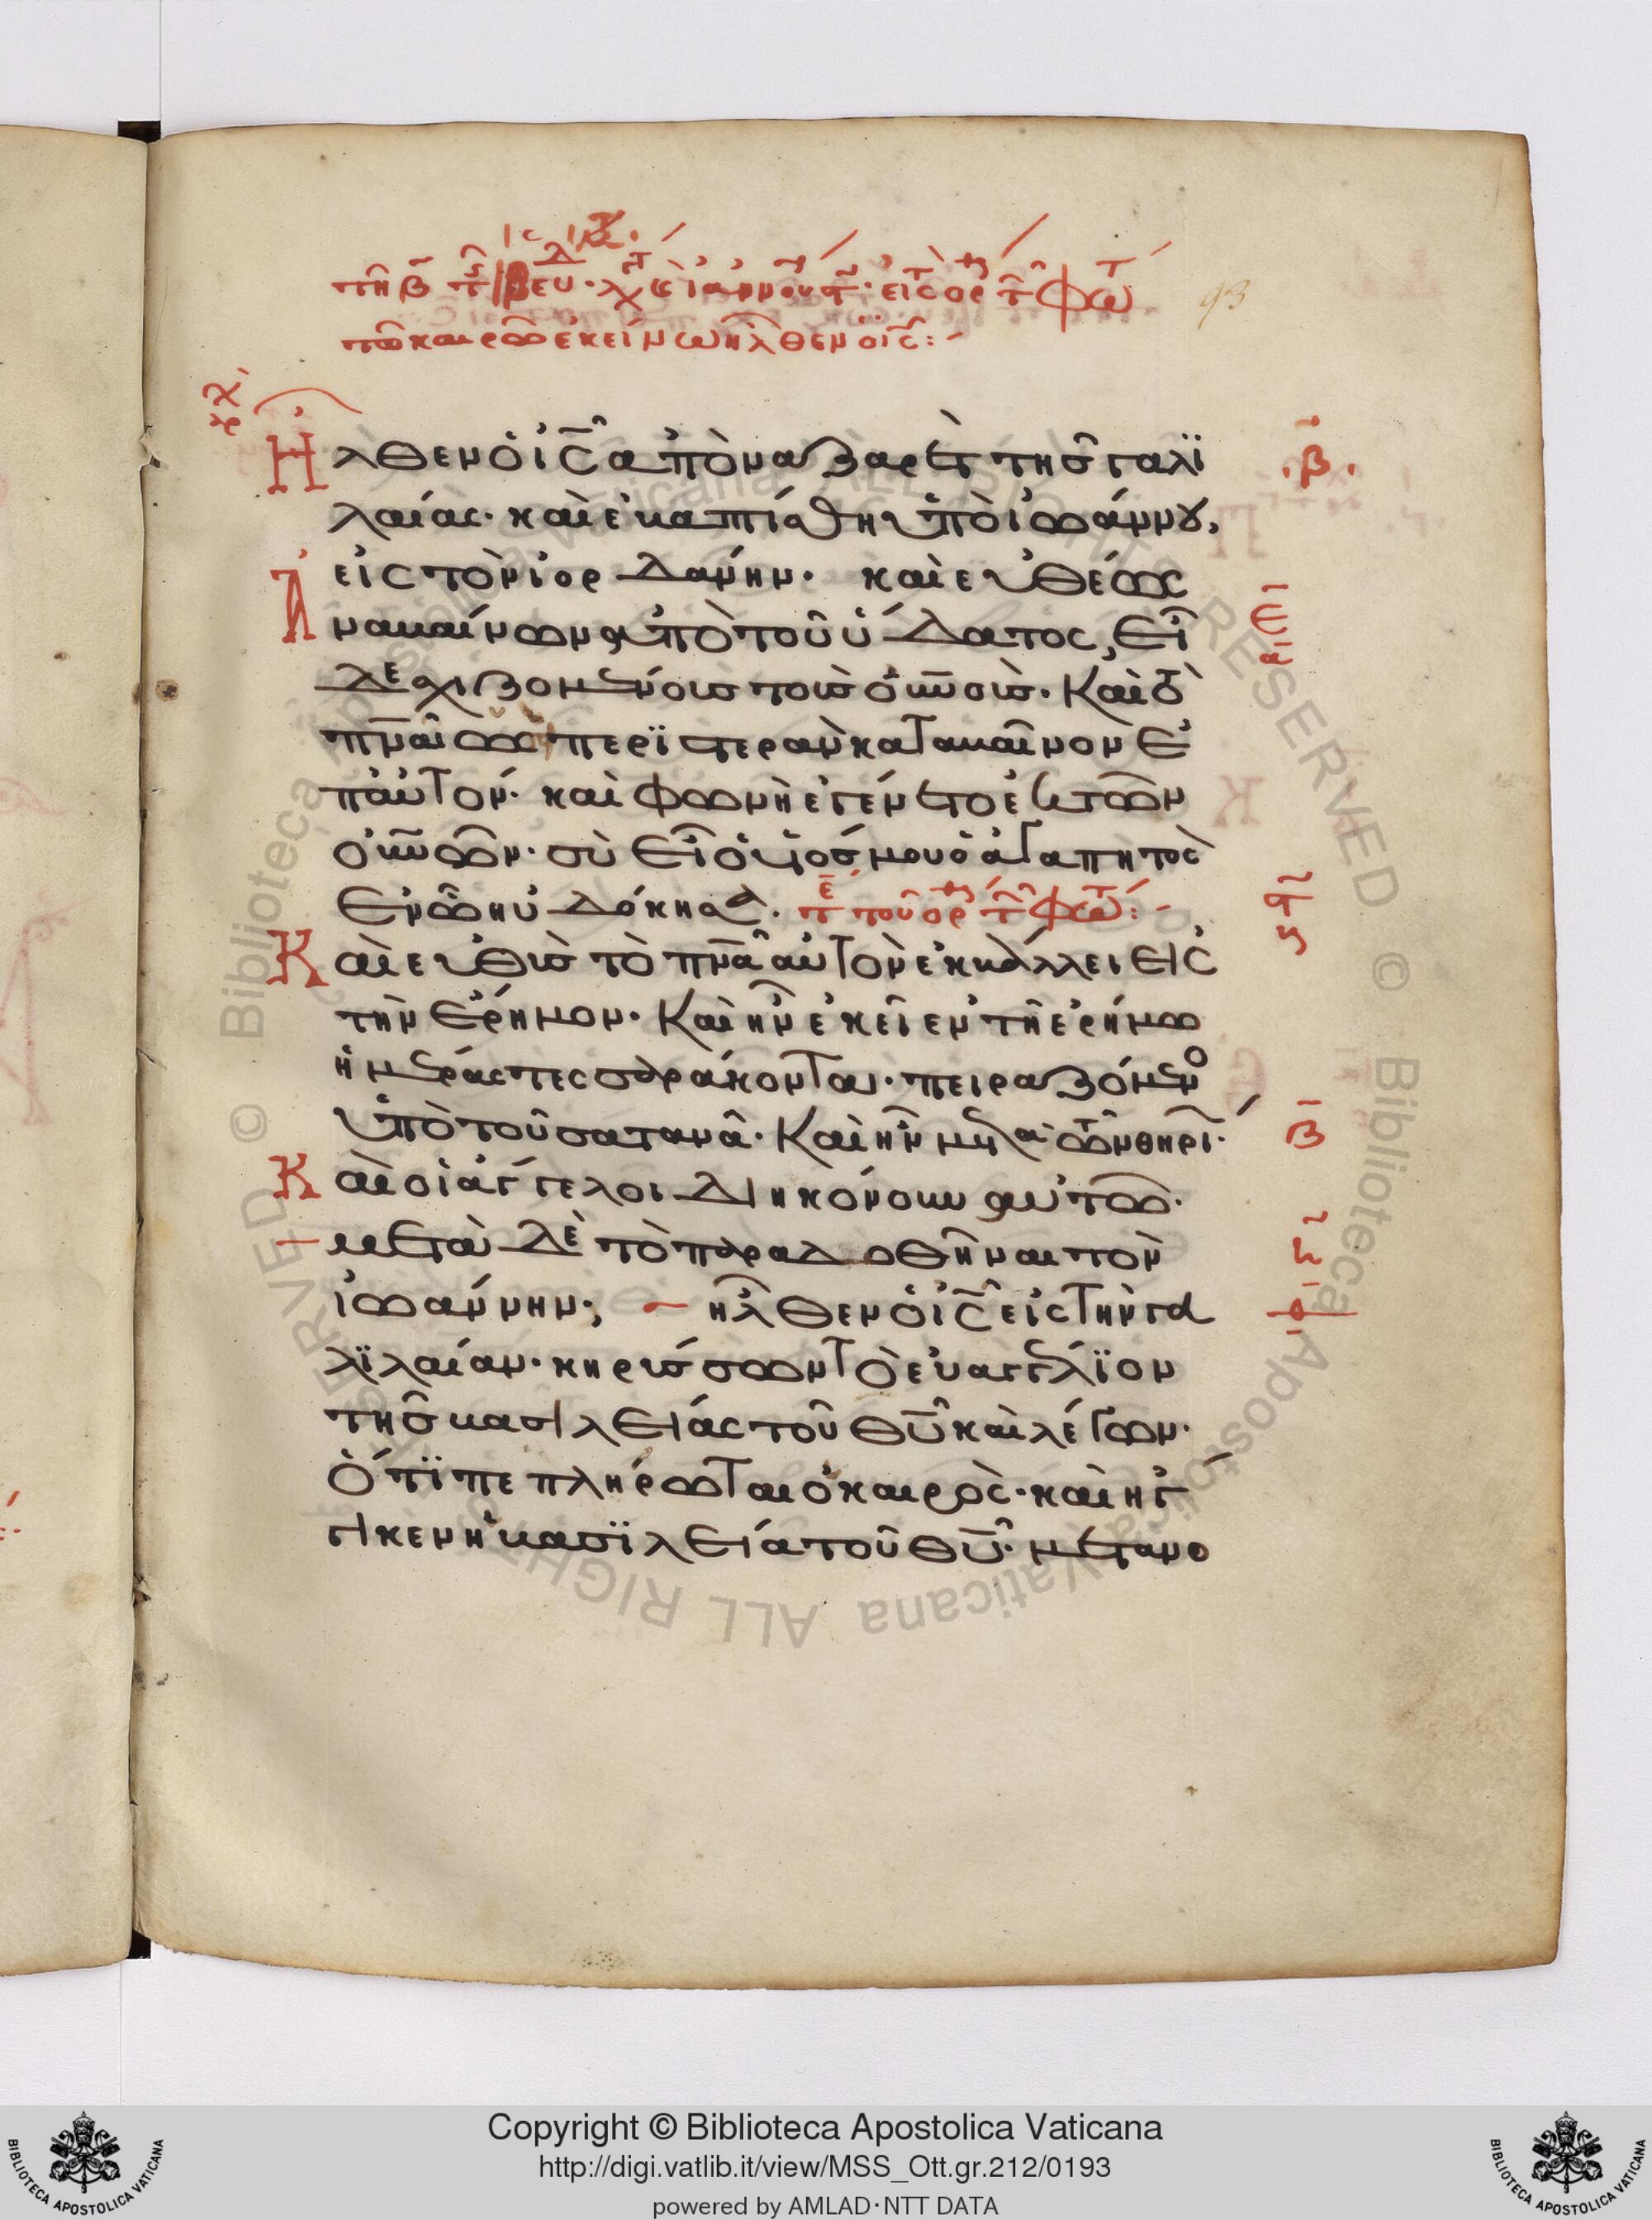 τῆ β τ ϛ ἑβδ. μηνὶ ἰαννουαρ. εἰς τ ὄρθ τ φώτ
τῶ καιρῶ ἐκείνω ἦλθεν ὁ ῑς̄:-
93
Ἦλθεν ὁ ῑς̄ ἀπὸ ναζαρὲτ τῆς γαλϊ
λαίας· καὶ ἐβαπτίσθη ὑπὸ ἰωάννου,
εἰς τὸν ἰορδάνην· καὶ εὐθέως
Ἀναβαίνων ἀπὸ τοῦ ὕδατος, εἶ
δε σχιζομένους τοὺς ο̅υ̅νο̅υ̅ς· Καὶ τὸ
π̅ν̅α̅ ὡς περϊστερὰν καταβαῖνον ἐ
π' αὐτόν· καὶ φωνὴ ἐγένετο ἐκ τῶν
ο̅υ̅νῶν· σὺ εἶ ὁ υἱός μου ὁ ἀγαπητὸς
ἐν ᾧ ηὐδόκησα. τοῦ ὄρθ τ φώτ:-
Καὶ εὐθὺς τὸ π̅ν̅α̅ αὐτὸν ἐκβάλλει εἰς
τὴν ἔρημον· Καὶ ἦν ἐκεῖ ἐν τῆ ἐρήμω
ἡμέρας τεσσαράκοντα· πειραζόμενο
ὑπὸ τοῦ σατανᾶ· Καὶ ἦν μετὰ τῶν θηρί·
Καὶ οἱ ἄγγελοι διηκόνουν αὐτῶ·
μετὰ δὲ τὸ παραδοθῆναι τὸν
ἰωάννην; ἦλθεν ὁ ῑς̄ εἰς τὴν γα
λϊλαίαν· κηρύσσων τὸ εὐαγγέλϊον
τῆς βασιλείας τοῦ θ̅υ̅ καὶ λέγων·
Ὅτϊ πεπλήρωται ὁ καιρὸς· καὶ ἤγ
γικεν ἡ βασϊλεία τοῦ θ̅υ̅· μετανο
.β.
ε
ϛ
β
Copyright © Biblioteca Apostolica Vaticana
http://digi.vatlib.it/view/MSS_Ott.gr.212/0193
powered by AMLAD·NTT DATA
BIBLIOTECA APOSTOLICA VATICANA
BIBLIOTECA APOSTOLICA VATICANA
© Biblioteca Apostolica Vaticana ALL RIGHTS RESERVED